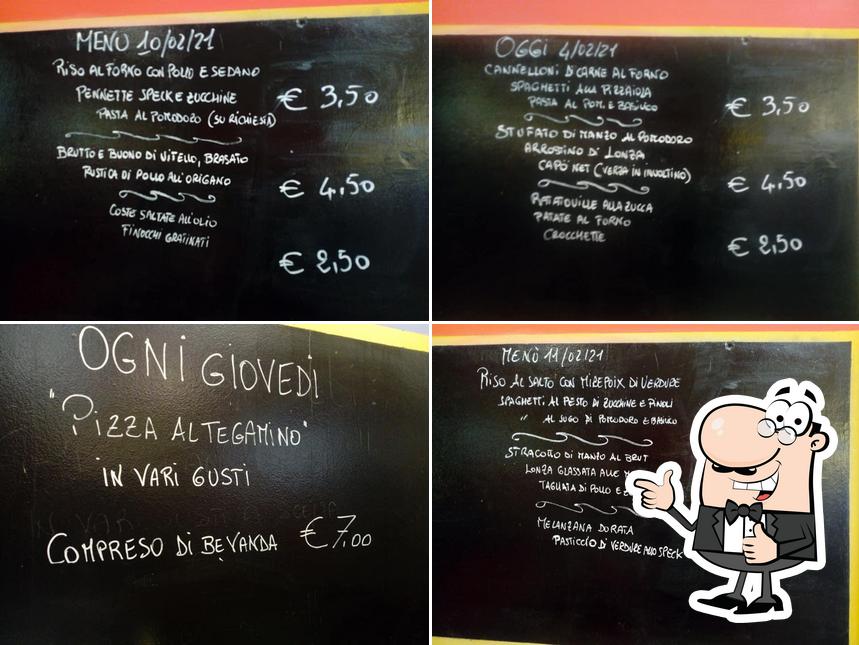 MENÙ 10/02/21
RISO AL FORNO CON POLLO E SEDANO
PENNETTE SPECK E ZUCCHINE
PASTA AL POMODORO (SU RICHIESTA)
€ 3,50
BRUTTO E BUONO DI VITELLO, BRASATO
RUSTICA DI POLLO ALL'ORIGANO
€ 4,50
COSTE SALTATE ALL'OLIO
FINOCCHI GRATINATI
€ 2,50
OGGI 4/02/21
CANNELLONI DI CARNE AL FORNO
SPAGHETTI ALLA PIZZAIOLA
PASTA AL POM. E BASILICO
€ 3,50
STUFATO DI MANZO AL POMODORO
ARROSTINO DI LONZA
CAPÖ NET (VERZA IN INVOLTINO)
€ 4,50
RATATOUILLE ALLA ZUCCA
PATATE AL FORNO
CROCCHETTE
€ 2,50
OGNI GIOVEDÌ
"PIZZA AL TEGAMINO"
IN VARI GUSTI
COMPRESO DI BEVANDA € 7,00
MENÙ 11/02/21
RISO AL SALTO CON MIREPOIX DI VERDURE
SPAGHETTI AL PESTO DI ZUCCHINE E PINOLI
" AL SUGO DI POMODORO E BASILICO
STRACOTTO DI MANZO AL BRUT
LONZA GLASSATA ALLE
TAGLIATA DI POLLO E
MELANZANA DORATA
PASTICCIO DI VERDURE ALLO SPECK